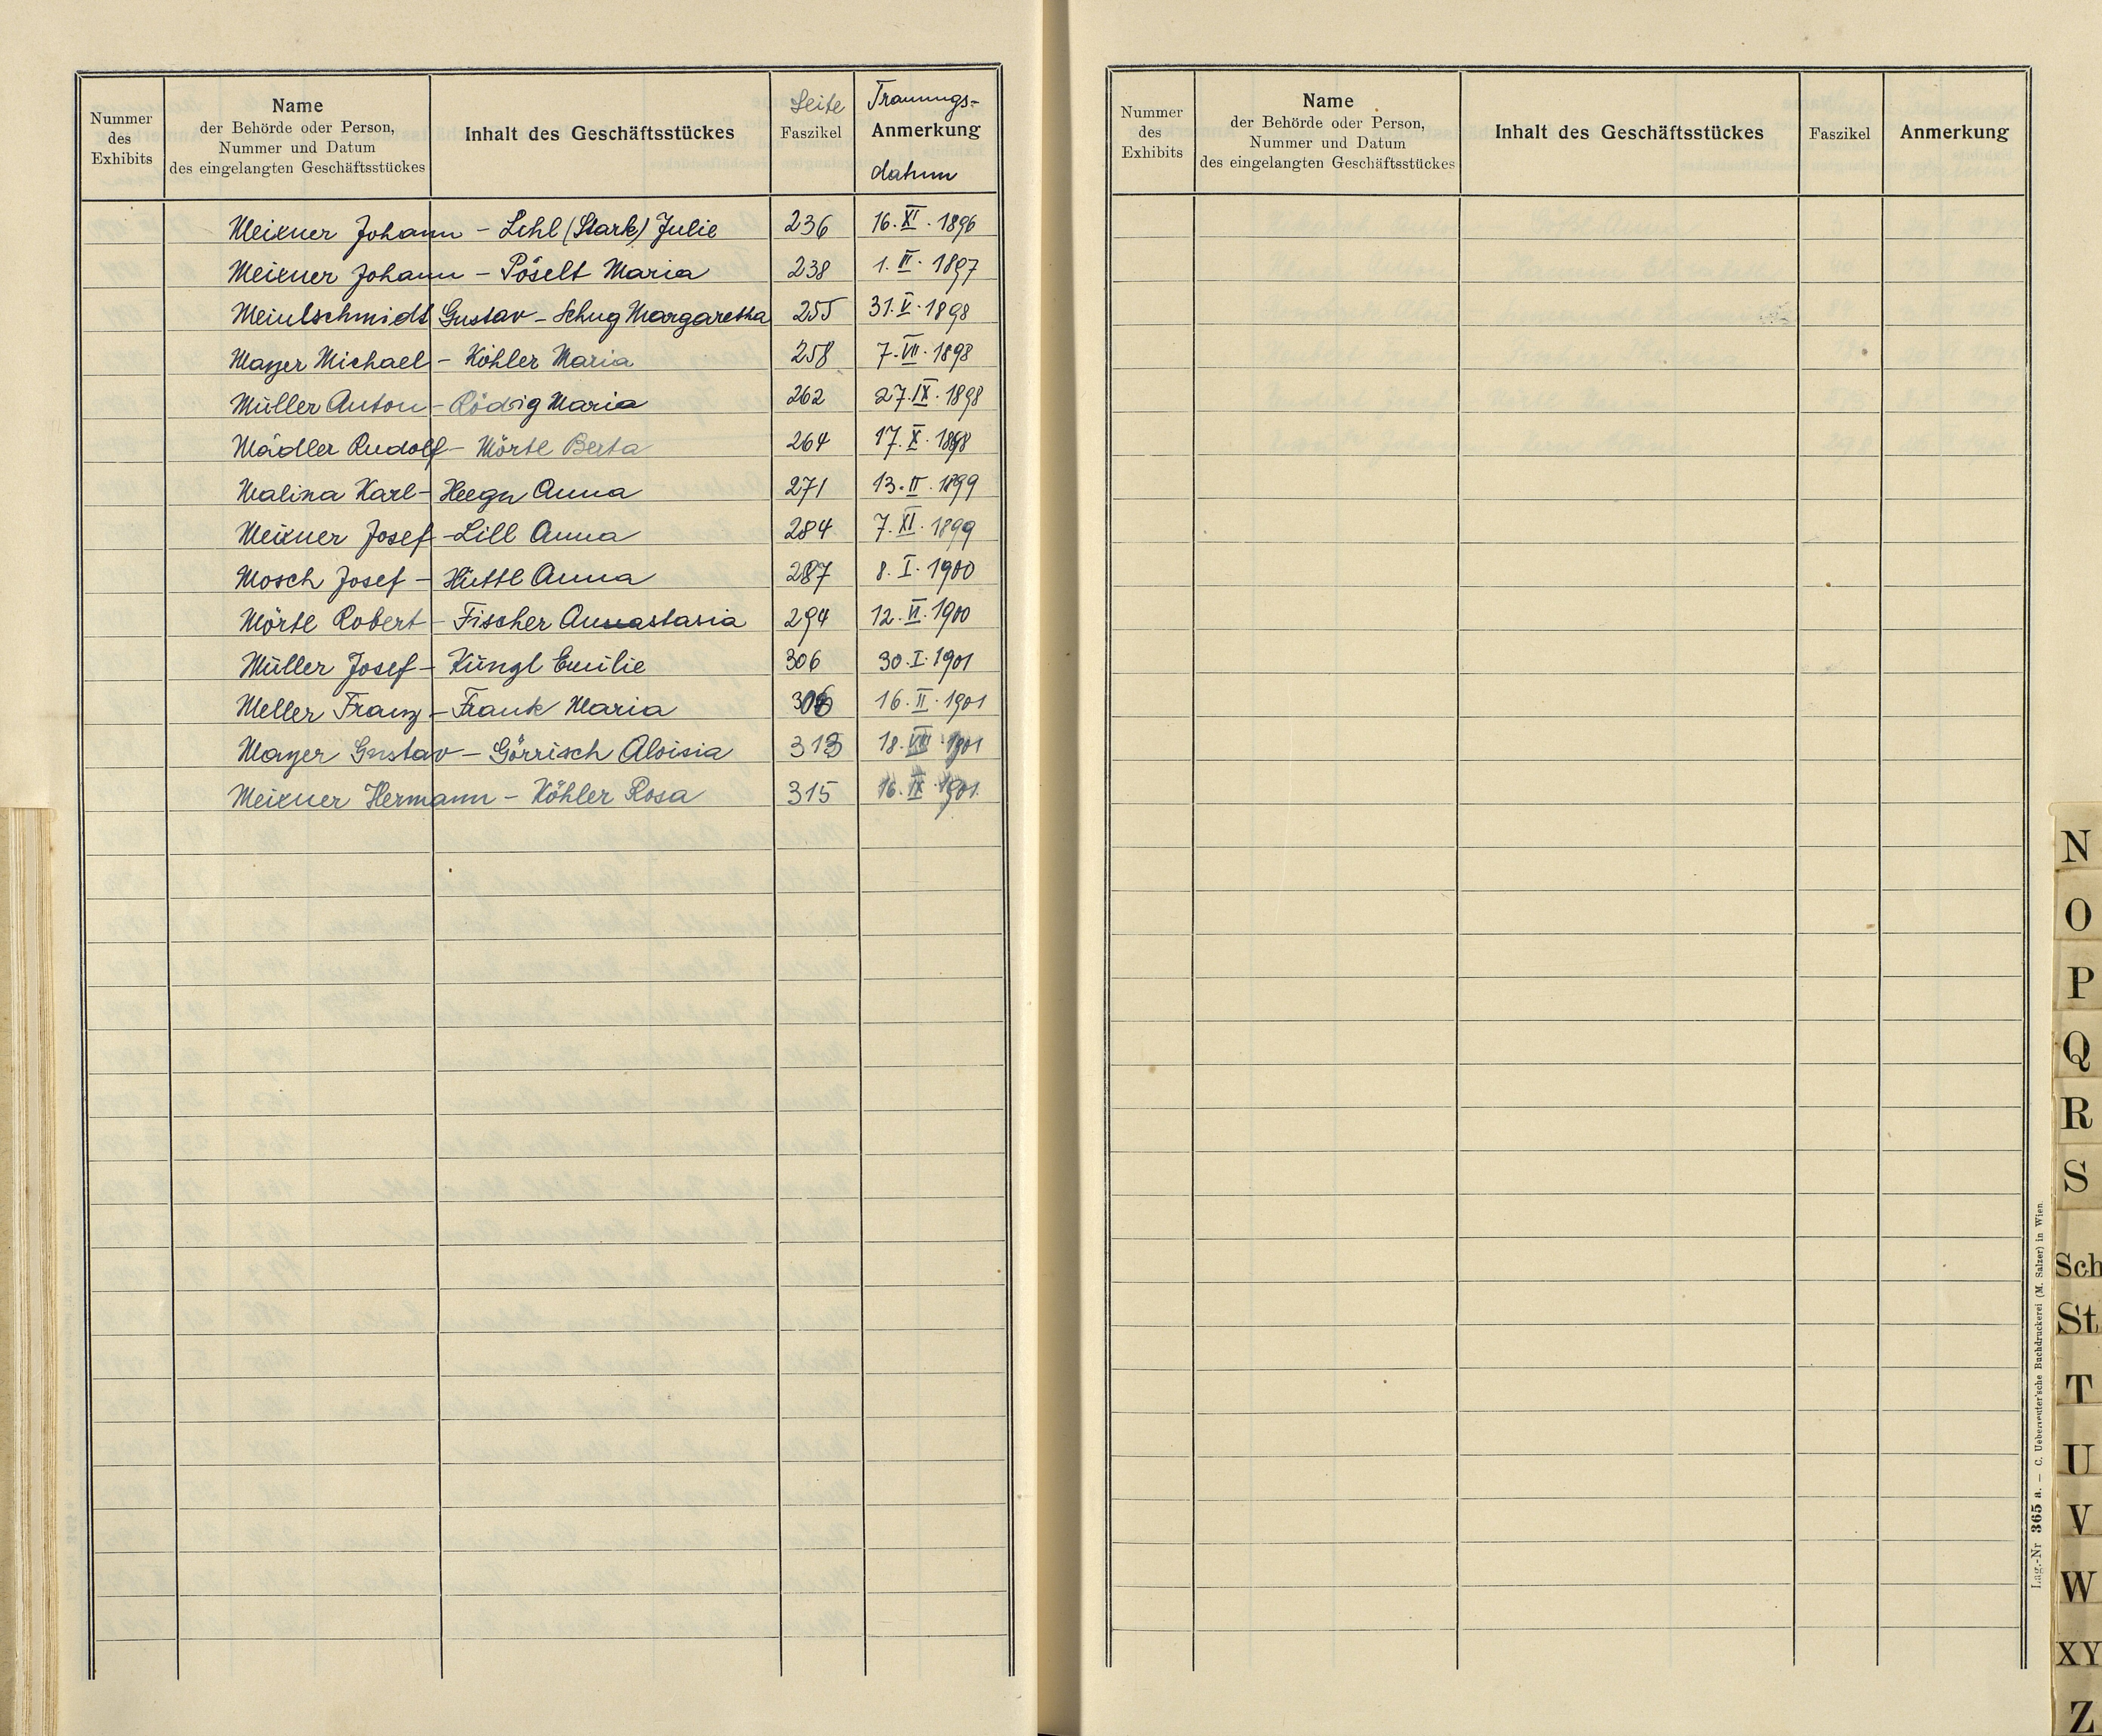 Nummer
des
Exhibits
Name
der Behörde oder Person,
Nummer und Datum
des eingelangten Geschäftsstückes
Inhalt des Geschäftsstückes
Seite
Faszikel
Trauungs-
Anmerkung
datum
Meixner Johann - Lehl (Stark) Julie 236 16. XI. 1896
Meixner Johann - Pöselt Maria 238 1. III. 1897
Meinlschmidt Gustav - Schug Margaretha 255 31. V. 1898
Mayer Michael - Köhler Maria 258 7. VII. 1898
Müller Anton - Rödig Maria 262 27. IX. 1898
Mädler Rudolf - Mörtl Berta 264 17. X. 1898
Malina Karl - Heegn Anna 271 13. II. 1899
Meixner Josef - Lill Anna 284 7. XI. 1899
Mosch Josef - Hüttl Anna 287 8. I. 1900
Mörtl Robert - Fischer Annastasia 294 12. VI. 1900
Müller Josef - Küngl Emilie 306 30. I. 1901
Meller Franz - Frank Maria 306 16. II. 1901
Mayer Gustav - Görrisch Aloisia 313 18. VIII. 1901
Meixner Hermann - Köhler Rosa 315 16. IX. 1901.
Nummer
des
Exhibits
Name
der Behörde oder Person,
Nummer und Datum
des eingelangten Geschäftsstückes
Inhalt des Geschäftsstückes
Faszikel
Anmerkung
Lag.-Nr 365 a. — C. Ueberreuter'sche Buchdruckerei (M. Salzer) in Wien
N
O
P
Q
R
S
Sch
St
T
U
V
W
XY
Z